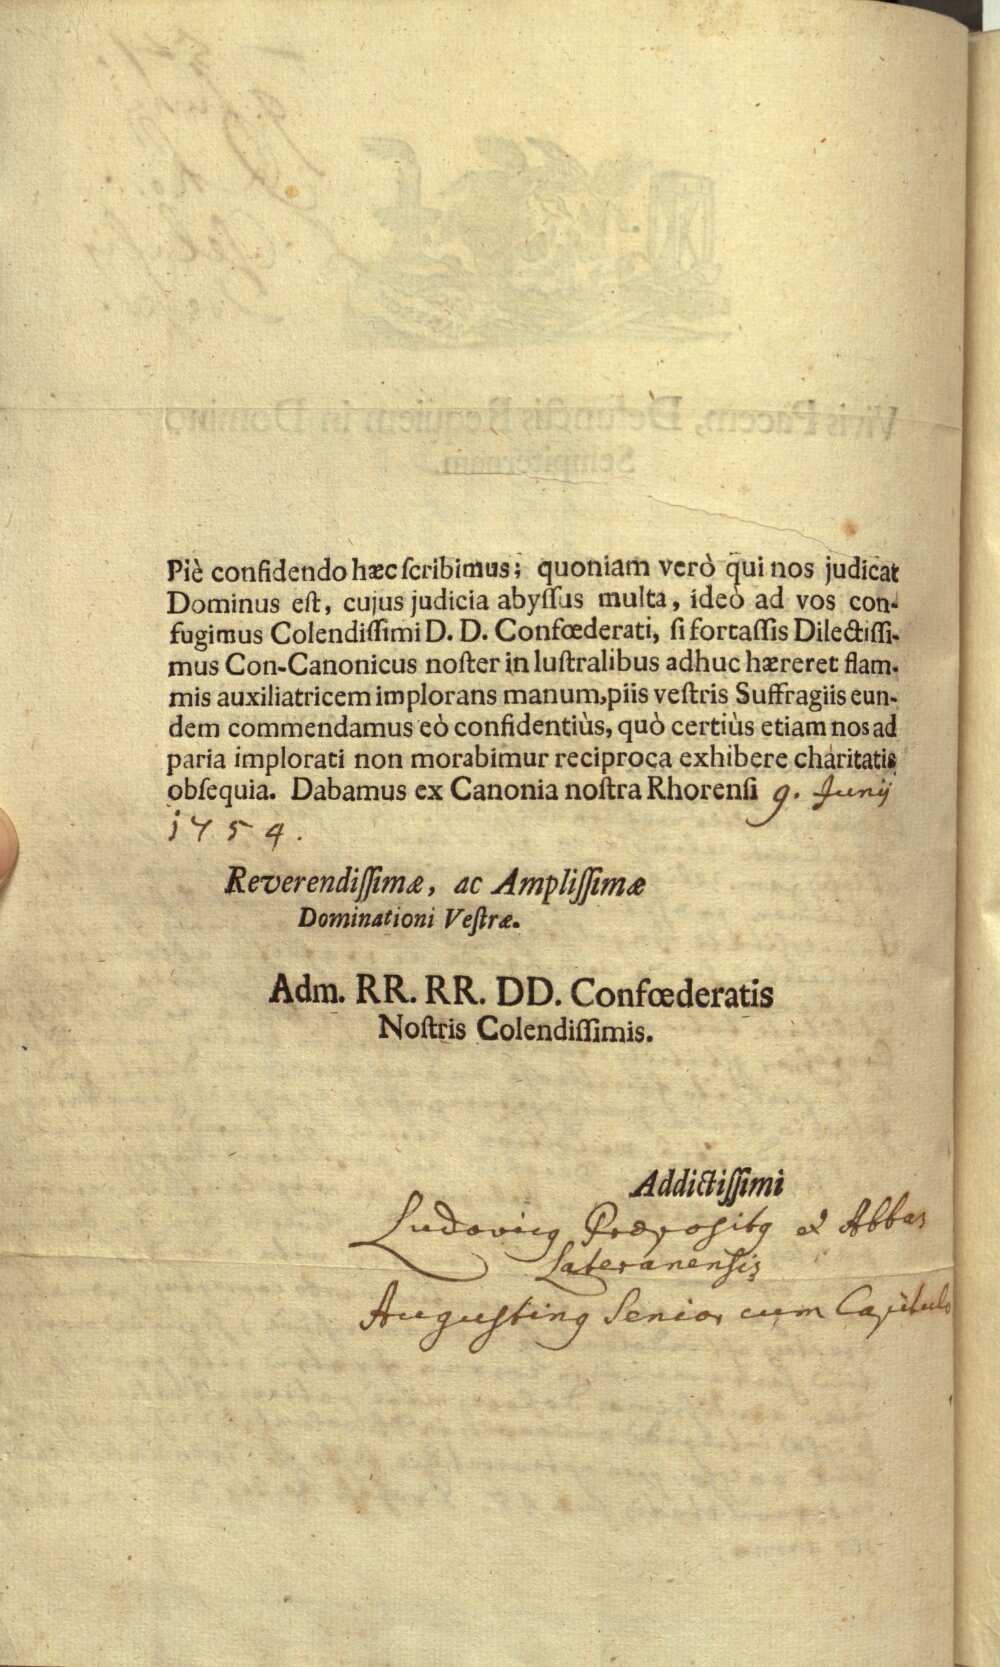 Piè confidendo hæc ſcribimus; quoniam verò qui nos judicat
Dominus eſt, cujus judicia abyſſus multa, ideò ad vos con-
fugimus Colendiſſimi D. D. Confœderati, ſi fortaſſis Dilectiſſi-
mus Con-Canonicus noſter in luſtralibus adhuc hæreret flam-
mis auxiliatricem implorans manum, piis veſtris Suffragiis eun-
dem commendamus eò confidentiùs, quò certiùs etiam nos ad
paria implorati non morabimur reciproca exhibere charitatis
obſequia. Dabamus ex Canonia noſtra Rhorenſi 9. Junij
1754.
Reverendiſſimæ, ac Ampliſſimæ
Dominationi Veſtræ.
Adm. RR. RR. DD. Confœderatis
Noſtris Colendiſſimis.
Addictiſſimi
Ludovicꝰ Præpositꝰ & Abbas
Lateranensis
Augustinꝰ Senior cum Capitulo